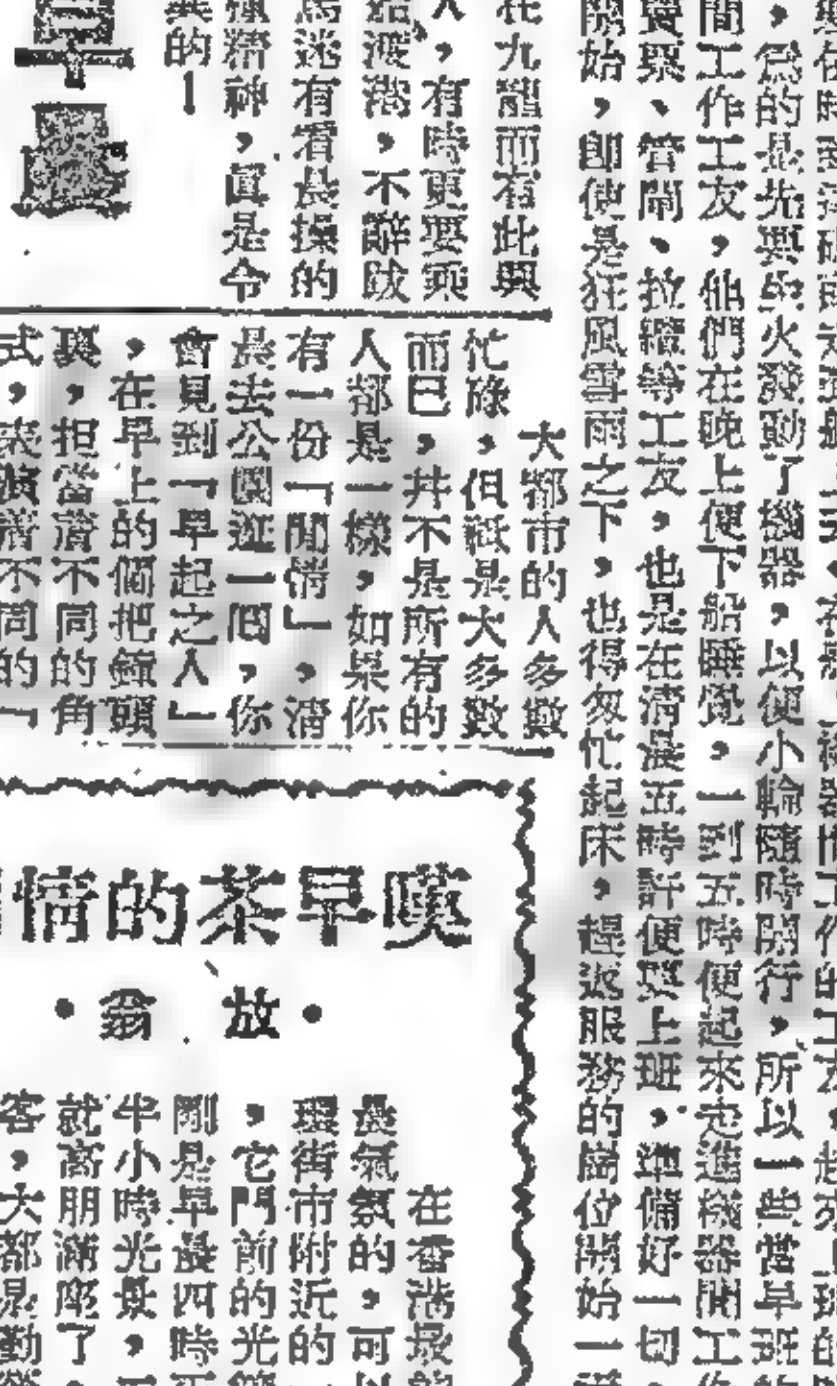 ，為的是先要生火發動了機器，以便小輪隨時開行，所以一些當早班的
間工作工友，他們在晚上便下船睡覺。一到五時便起來走進機器間工作
賣票、管閘、拉纜等工友，也是在清晨五時許便要上班，準備好一切，
開始，即使是狂風雪雨之下，也得匆忙起床，趕返服務的崗位開始一
在九龍而有此興
人，有時更要乘
渡海，不辭跋
馬迷有看晨操的
精神，眞是令
異的！
早晨
大都市的人多數
忙碌，但祗是大多數
而已，井不是所有的
人都是一樣，如果你
有一份「閒情」，清
晨去公園逛一囘，你
會見到「早起之人」
，在早上的個把鐘頭
裏，担當着不同的角
式，表演着不同的「
嘆早茶的情
・放翁・
在香港最
晨氣氛的，可以
環街市附近的
，它門前的光
剛是早晨四時正
半小時光景，
就高朋滿座了，
客，大都是勤